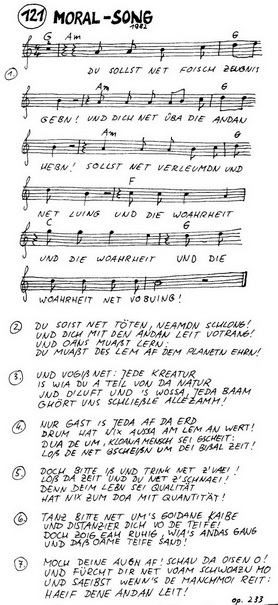 121 MORAL-SONG
1982
G Am G
1. DU SOLLST NET FOISCH ZEUGNIS
Am G
GEBN! UND DICH NET ÜBA DIE ANDAN
Am G
HEBN! SOLLST NET VERLEUMDN UND
F
NET LUING UND DIE WOAHRHEIT
C G
UND DIE WOAHRHEIT UND DIE
WOAHRHEIT NET VOBUING!
2. DU SOIST NET TÖTEN, NEAMDN SCHLONG!
UND DICH MIT DEN ANDAN LEIT VOTRANG!
UND OANS MUAßT LERN:
DU MUAßT DES LEM AF DEM PLANETN EHRN!
3. UND VOGIß NET: JEDE KREATUR
IS WIA DU A TEIL VON DA NATUR
UND D'LUFT UND 'S WOSSA, JEDA BAAM
GHÖRT UNS SCHLIEßLE ALLEZAMM!
4. NUR GAST IS JEDA AF DA ERD
DRUM HAT NIX AUSSA AM LEM AN WERT!
DUA DE UM, KLOANA MENSCH SEI GSCHEIT:
LOß DE NET GSCHEIßN UM DEI BISAL ZEIT!
5. DOCH BITTE Iß UND TRINK NET Z'VAEI!
LOß DA ZEIT UND DU NET Z'SCHNAEI!
DENN DEIM LEBN SEI QUALITÄT
HAT NIX ZUM DOA MIT QUANTITÄT!
6. TANZ BITTE NET UM'S GOIDANE KAIBE
UND DISTANZIER DICH VO DE TEIFE!
DOCH ZOIG EAH RUHIG, WIA'S ANDAS GANG
UND DAß OAME TEIFE SAND!
7. MOCH DEINE AUGN AF! SCHAU DA OISEN O!
UND FÜRCHT DIR NET VOAM SCHWOAZN MO
UND SAEIBST WENN'S DE MANCHMOI REIT:
HAEIF DENE ANDAN LEIT!
op. 233